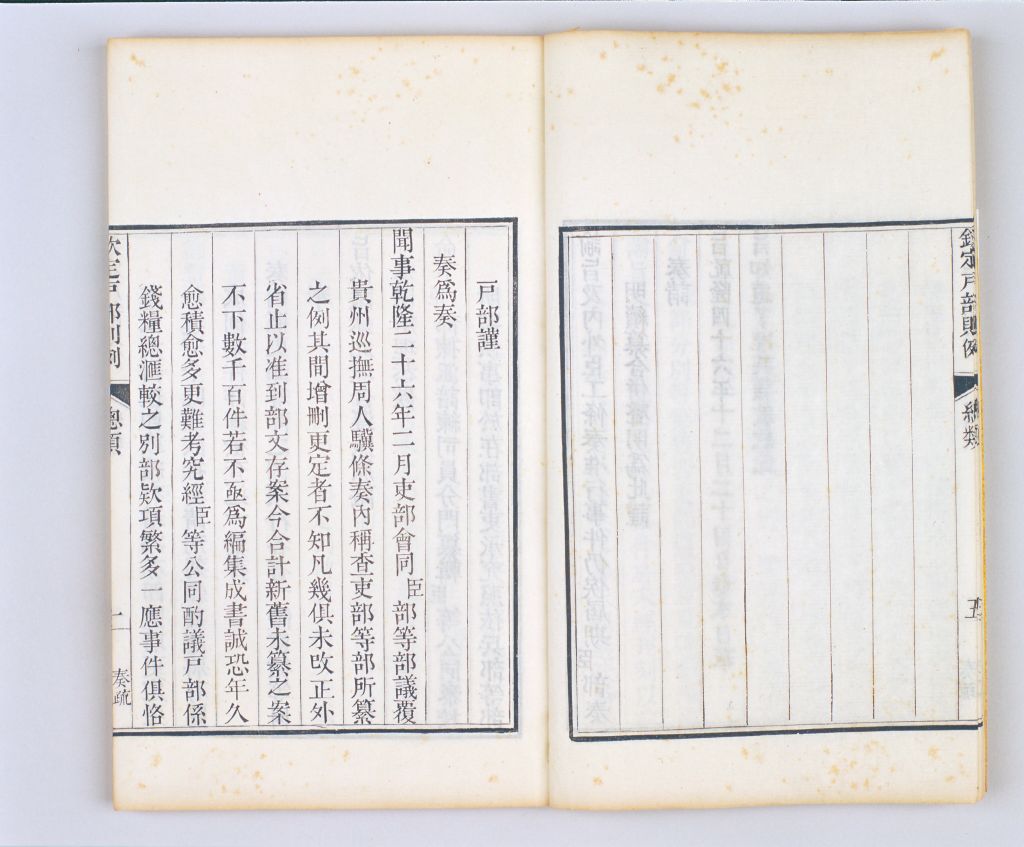 欽定戶部則例
總類
五
戶部謹
奏爲奏
聞事乾隆二十六年二月吏部會同臣部等部議覆
貴州巡撫周人驥條奏內稱查吏部等部所纂
之例其間增刪更定者不知凡幾俱未攺正外
省止以准到部文存案今合計新舊未纂之案
不下數千百件若不亟爲編集成書誠恐年久
愈積愈多更難考究經臣等公同酌議戶部係
錢糧總滙較之別部欵項繁多一應事件俱恪
欽定戶部則例
總類
奏疏